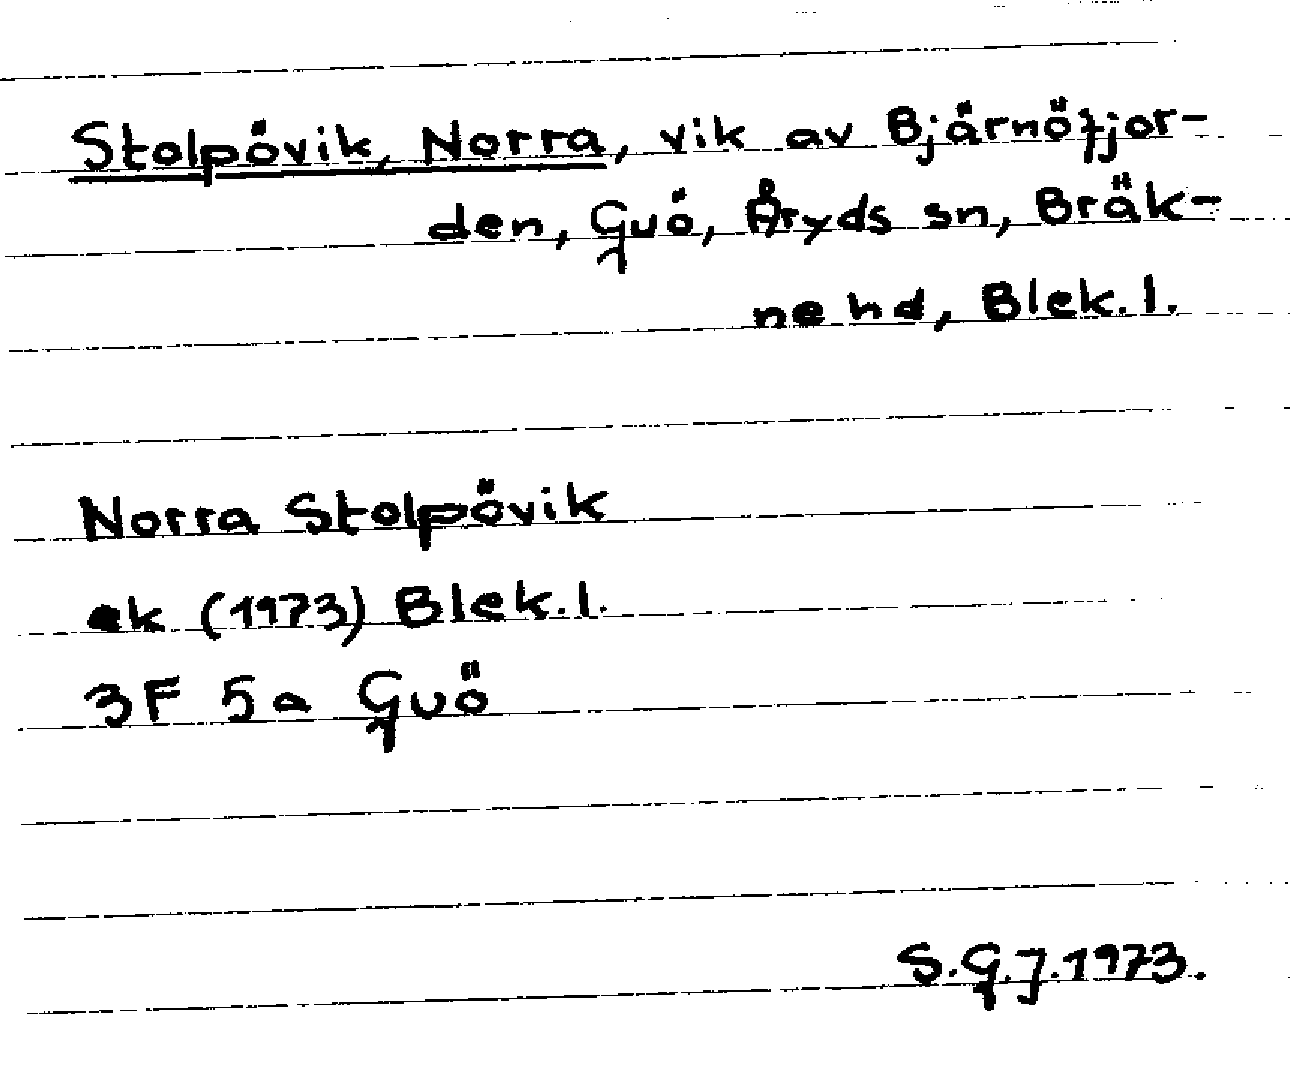 Stolpövik, Norra, vik av Bjärnöfjor-
den, Guö, Åryds sn, Bräk-
ne hd, Blek.l.
Norra Stolpövik
ek (1973) Blek.l.
3F 5a Guö
S.G.J.1973.